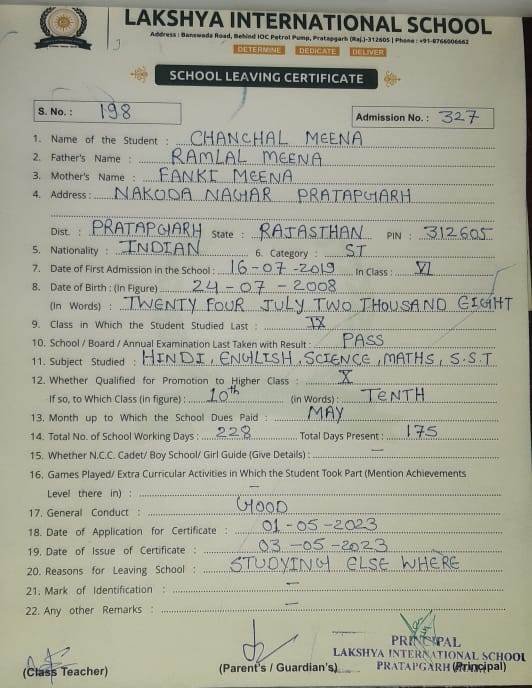 LAKSHYA INTERNATIONAL SCHOOL
Address : Banswada Road, Behind IOC Petrol Pump, Pratapgarh (Raj.)-312605 | Phone : +91-8766006662
DETERMINE DEDICATE DELIVER
SCHOOL LEAVING CERTIFICATE
S. No. : 198
Admission No. : 327
1. Name of the Student : CHANCHAL MEENA
2. Father's Name : RAMLAL MEENA
3. Mother's Name : FANKI MEENA
4. Address : NAKODA NAGAR PRATAPGARH
Dist. : PRATAPGARH State : RAJASTHAN PIN : 312605
5. Nationality : INDIAN 6. Category : ST
7. Date of First Admission in the School : 16-07-2019 In Class : VI
8. Date of Birth : (in Figure) 24-07-2008
(In Words) : TWENTY FOUR JULY TWO THOUSAND EIGHT
9. Class in Which the Student Studied Last : IX
10. School / Board / Annual Examination Last Taken with Result : PASS
11. Subject Studied : HINDI, ENGLISH, SCIENCE, MATHS, S.S.T
12. Whether Qualified for Promotion to Higher Class : X
If so, to Which Class (in figure) : 10th (in Words) : TENTH
13. Month up to Which the School Dues Paid : MAY
14. Total No. of School Working Days : 228 Total Days Present : 175
15. Whether N.C.C. Cadet/ Boy School/ Girl Guide (Give Details) : —
16. Games Played/ Extra Curricular Activities in Which the Student Took Part (Mention Achievements
Level there in) : —
17. General Conduct : GOOD
18. Date of Application for Certificate : 01-05-2023
19. Date of Issue of Certificate : 03-05-2023
20. Reasons for Leaving School : STUDYING ELSE WHERE
21. Mark of Identification : —
22. Any other Remarks : —
PRINCIPAL
LAKSHYA INTERNATIONAL SCHOOL
PRATAPGARH (Principal)
(Class Teacher)
(Parent's / Guardian's)